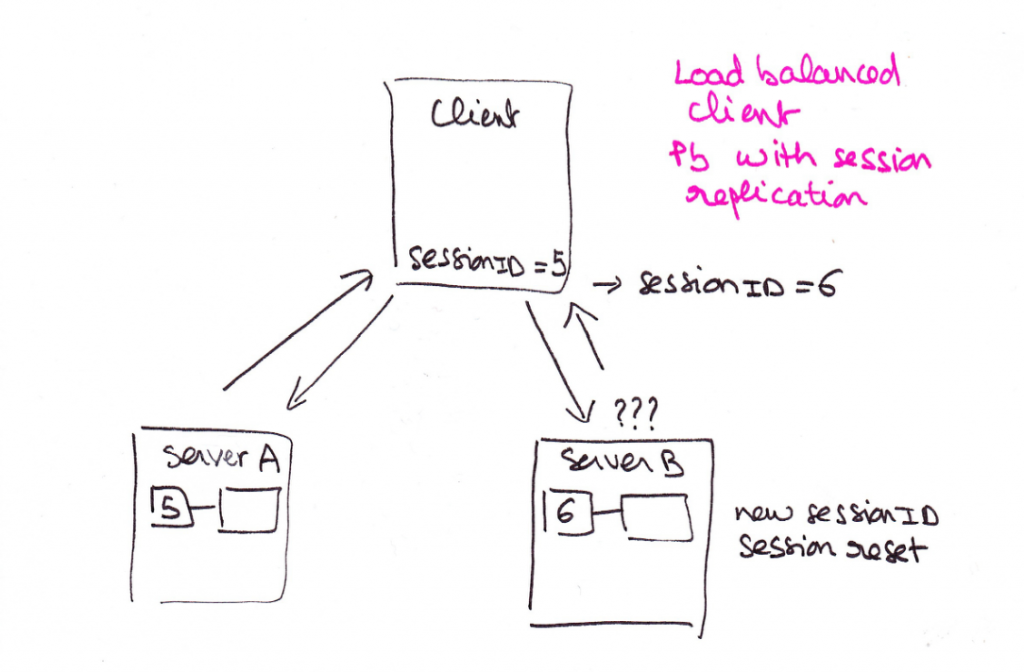 Load balanced
client
Pb with session
replication
Client
sessionID = 5
→ sessionID = 6
???
Server A
5
Server B
6
new sessionID
session reset